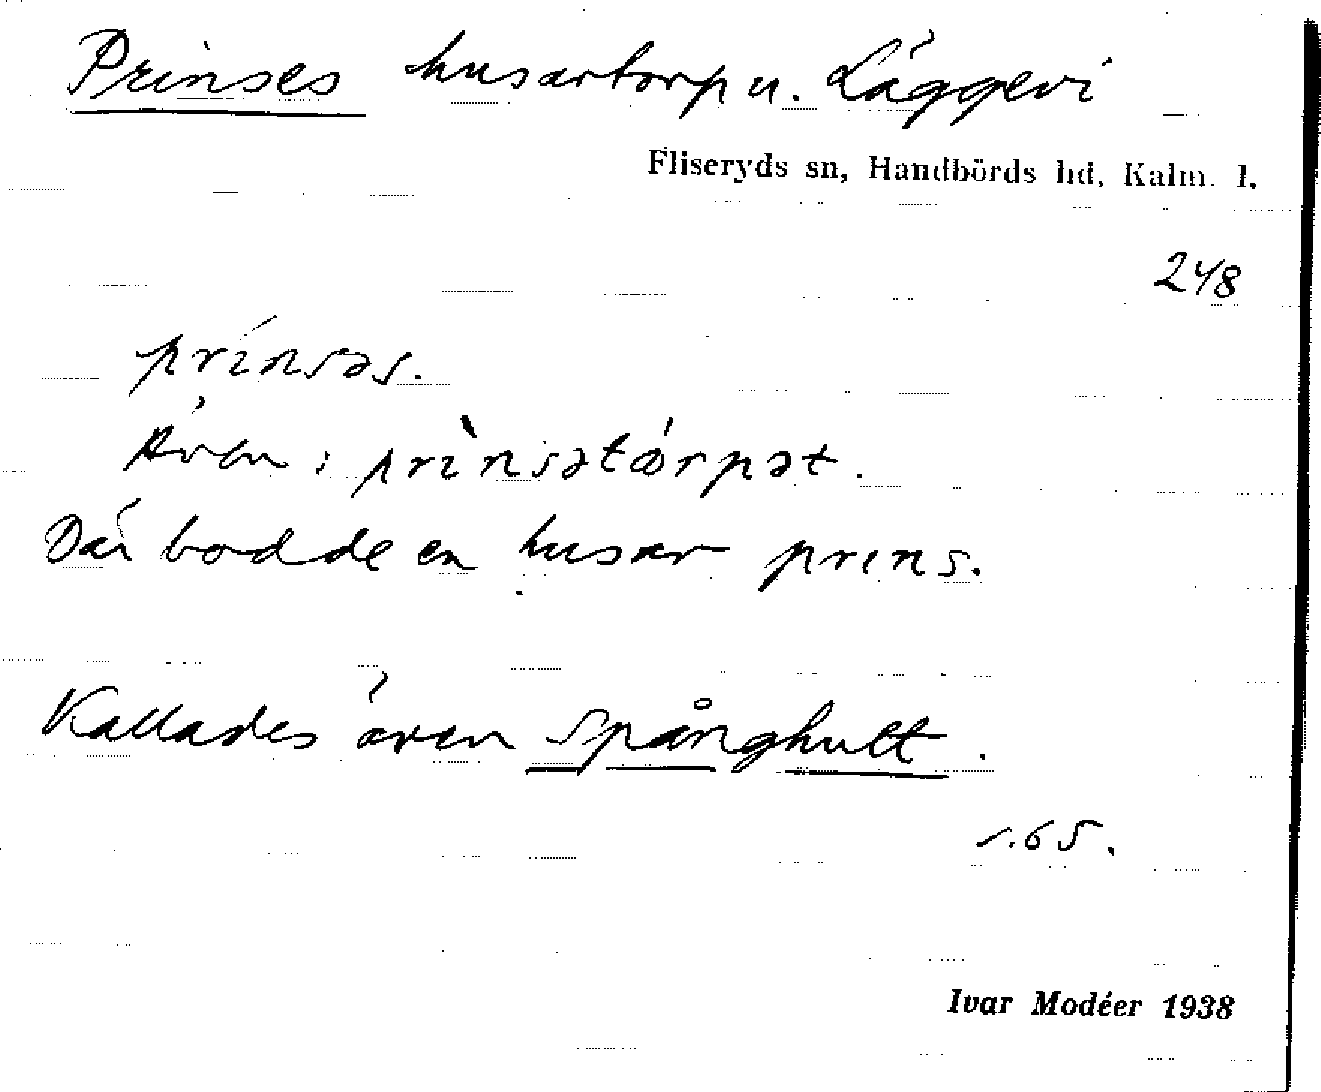 Prinses husartorp u. Läggevi
Fliseryds sn, Handbörds hd, Kalm. l.
248
prínsəs.
Även: prìnsətórpət.
Där bodde en husar prins.
Kallades även Spånghult.
s. 65.
Ivar Modéer 1938